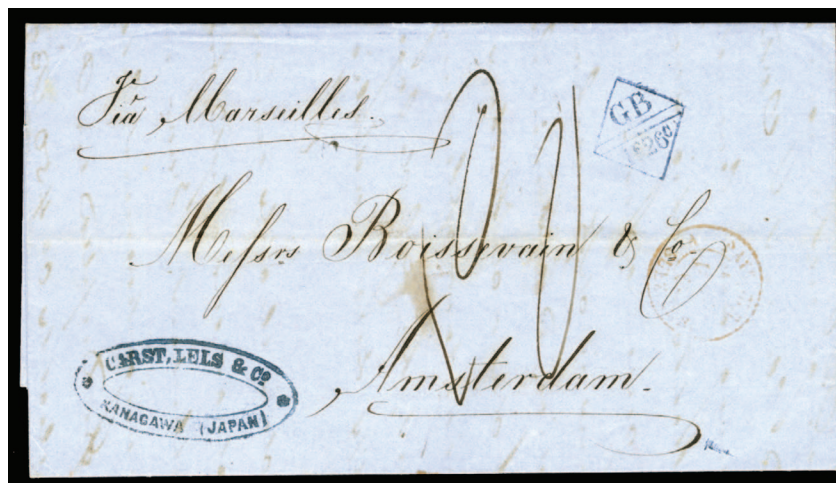 Via Marseilles.
GB
1F26c
Messrs Boissevain & Co
Amsterdam.
CARST, LELS & Co
KANAGAWA (JAPAN)